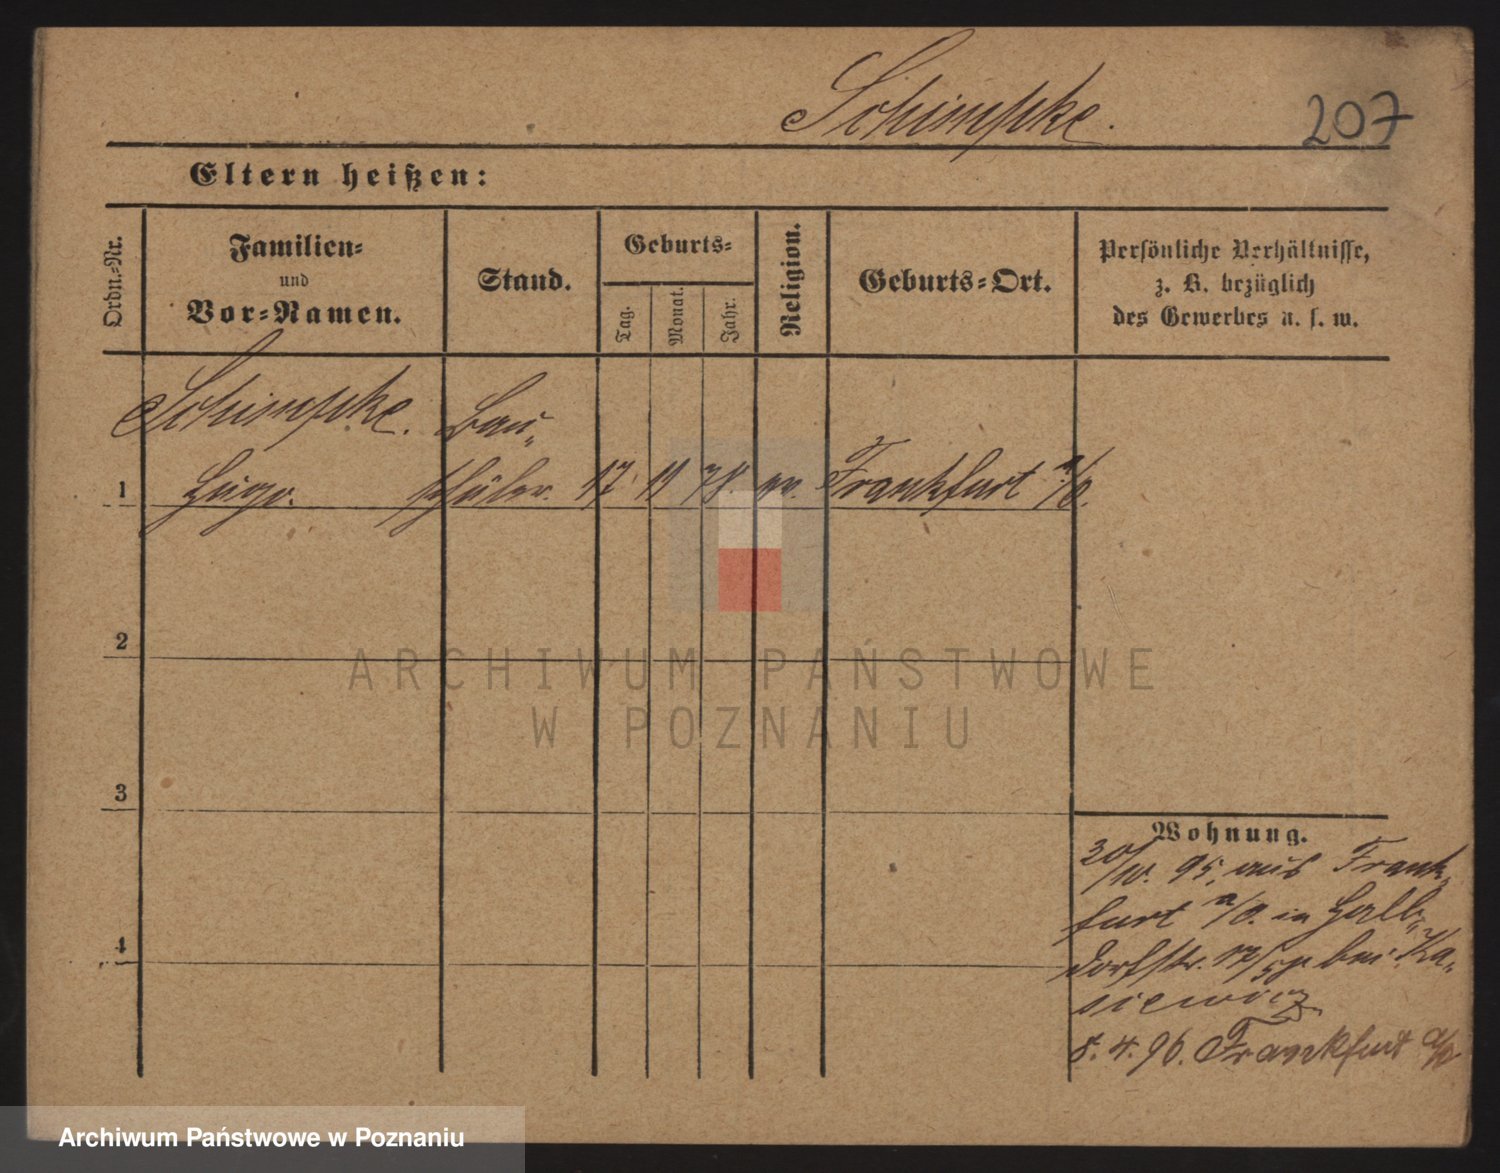 Schimpke.
207
Eltern heißen:
Ordn.-Nr.
Familien-
und
Vor-Namen.
Stand.
Geburts-
Tag.
Monat.
Jahr.
Religion.
Geburts-Ort.
Persönliche Verhältnisse,
z. B. bezüglich
des Gewerbes u. s. w.
Schimpke. Bau-
1 Hugo. schüler. 17 11 78 ev. Frankfurt a/O.
2
ARCHIWUM PAŃSTWOWE
W POZNANIU
3
Wohnung.
30/10. 95. aus Frank-
furt a/O. in Halb-
4
dorfstr. 17/ bei Ka-
siewicz
8. 4. 96. Frankfurt a/O
Archiwum Państwowe w Poznaniu